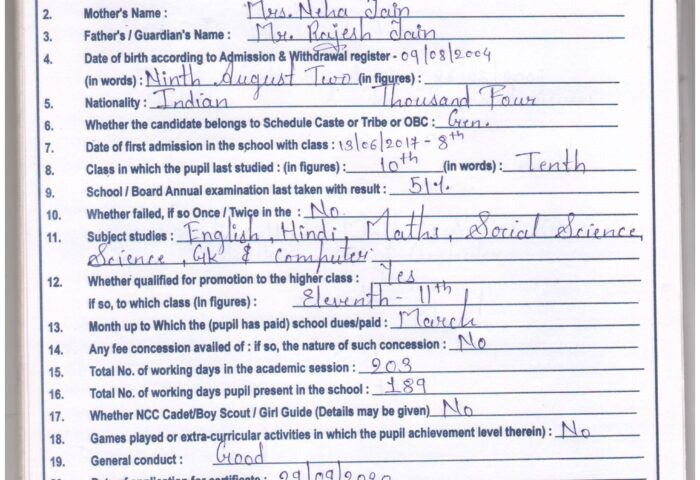 2. Mother's Name : Mrs. Neha Jain
3. Father's / Guardian's Name : Mr. Rajesh Jain
4. Date of birth according to Admission & Withdrawal register - 09/08/2004
(in words) : Ninth August Two (in figures) :
5. Nationality : Indian Thousand Four
6. Whether the candidate belongs to Schedule Caste or Tribe or OBC : Gen.
7. Date of first admission in the school with class : 13/06/2017 - 8th
8. Class in which the pupil last studied : (in figures) : 10th (in words) : Tenth
9. School / Board Annual examination last taken with result : 51%
10. Whether failed, if so Once / Twice in the : No
11. Subject studies : English, Hindi, Maths, Social Science,
Science, Gk & Computer
12. Whether qualified for promotion to the higher class : Yes
if so, to which class (in figures) : Eleventh - 11th
13. Month up to Which the (pupil has paid) school dues/paid : March
14. Any fee concession availed of : if so, the nature of such concession : No
15. Total No. of working days in the academic session : 203
16. Total No. of working days pupil present in the school : 189
17. Whether NCC Cadet/Boy Scout / Girl Guide (Details may be given) No
18. Games played or extra-curricular activities in which the pupil achievement level therein) : No
19. General conduct : Good
Date of application for certificate : 29/09/2020